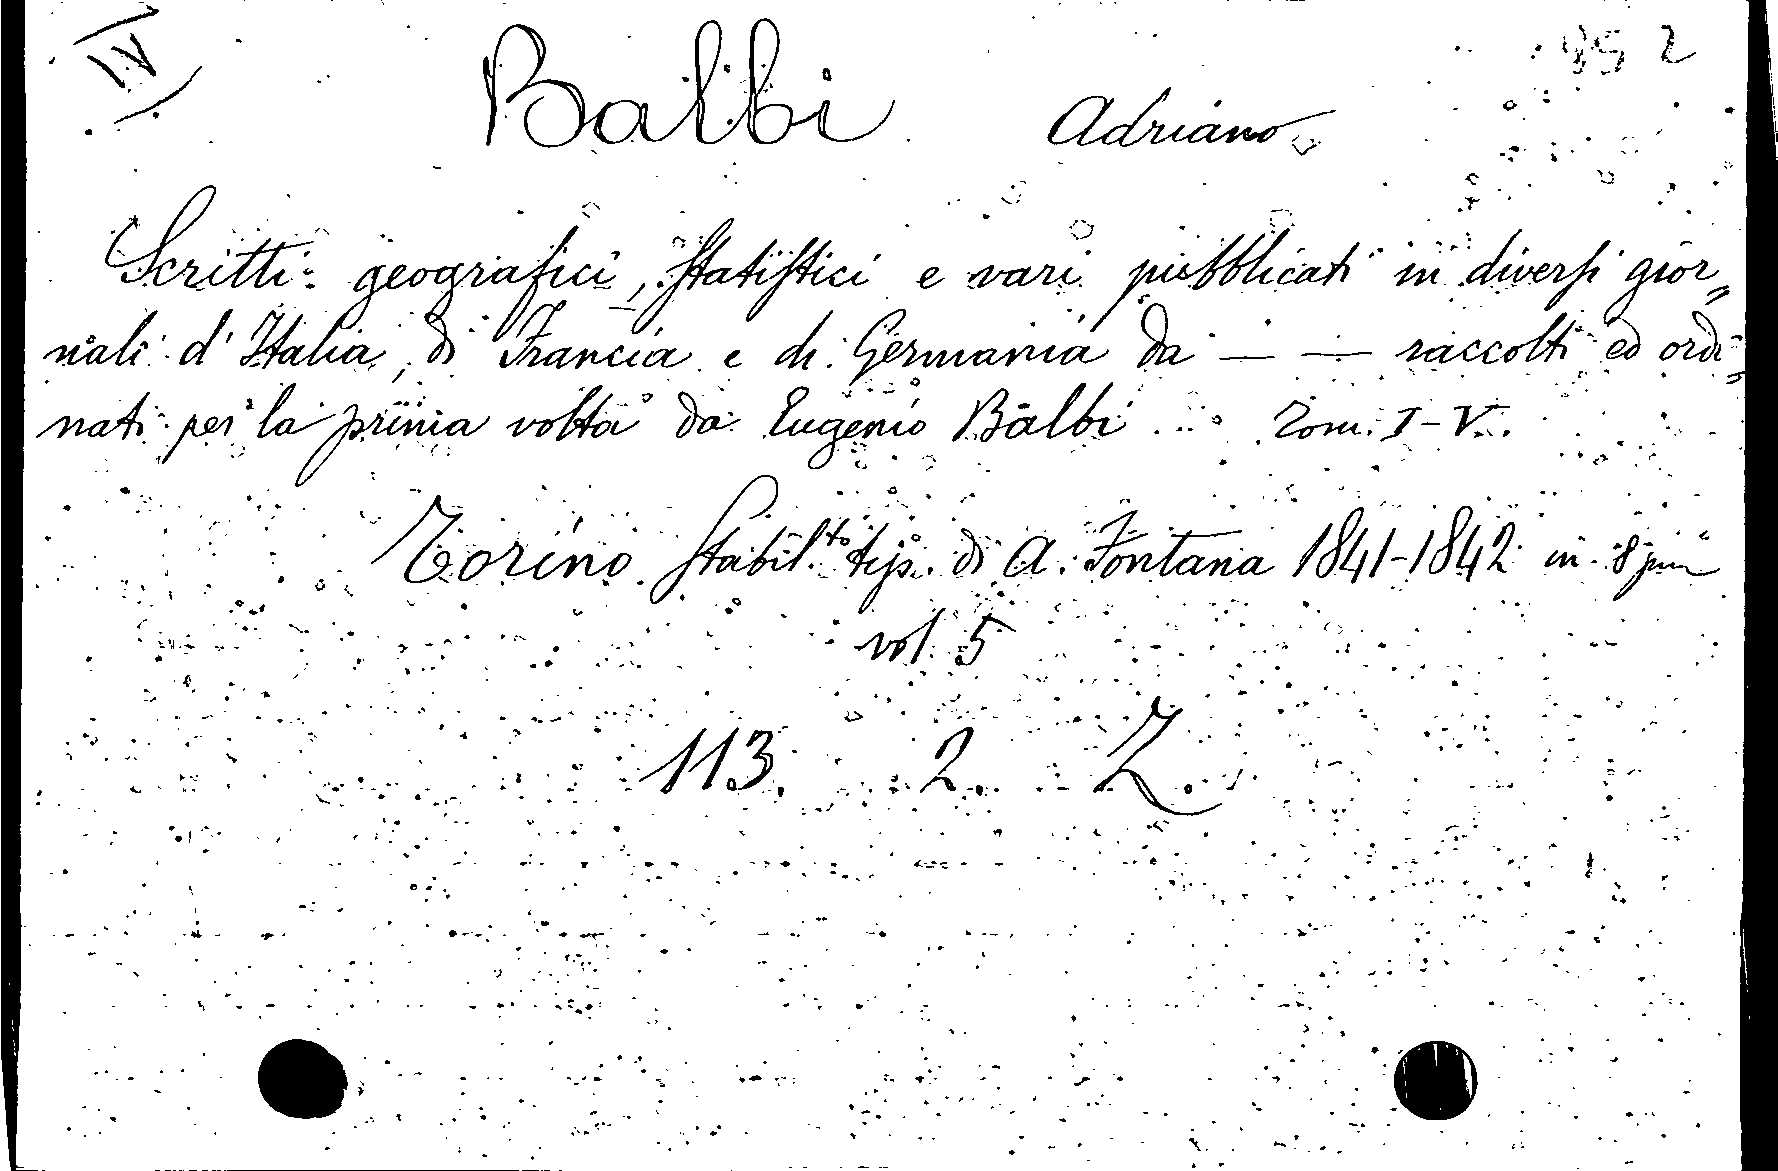 IV
Balbi Adriano
852
Scritti geografici, statistici e vari pubblicati in diversi gior„
nali d'Italia, di Francia e di Germania da — — raccolti ed ordi„
nati per la prima volta da Eugenio Balbi Tom. I-V.
Torino. Stabil.to tip. di A. Fontana 1841-1842 in 8
vol. 5
113. 2. Z.